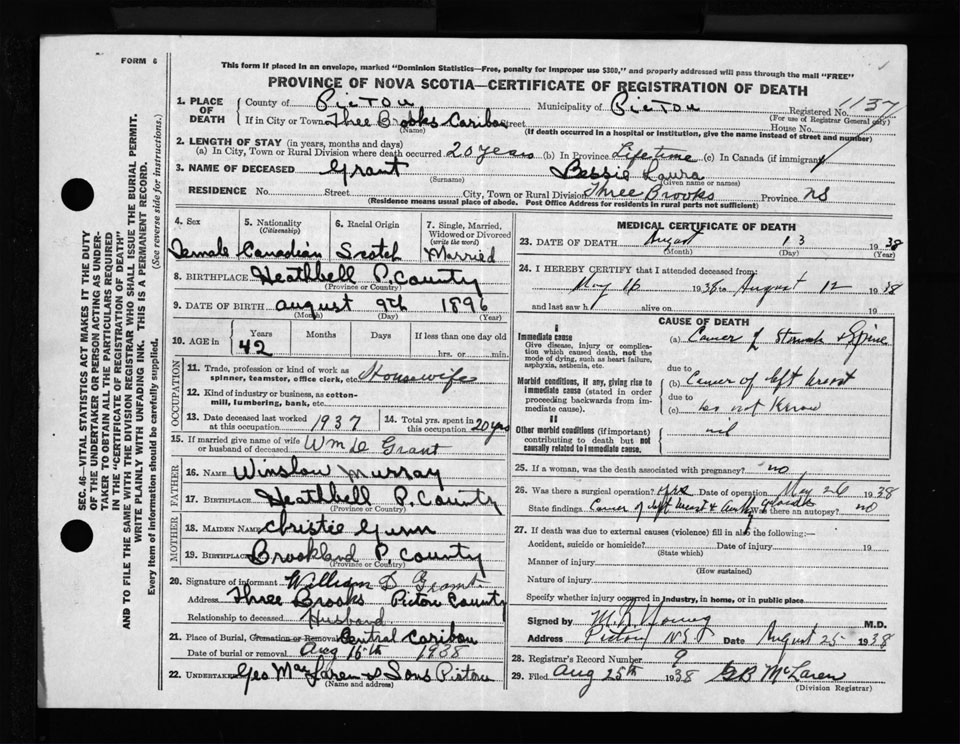 FORM 6
This form if placed in an envelope, marked "Dominion Statistics—Free, penalty for improper use $300," and properly addressed will pass through the mail "FREE"
PROVINCE OF NOVA SCOTIA—CERTIFICATE OF REGISTRATION OF DEATH
1. PLACE OF DEATH County of Pictou Municipality of Pictou Registered No. 1137
(For use of Registrar General only)
If in City or Town Thee Brooks Caribou Street House No.
(Name) (If death occurred in a hospital or institution, give the name instead of street and number)
2. LENGTH OF STAY (in years, months and days)
(a) In City, Town or Rural Division where death occurred 20 years (b) In Province Lifetime (c) In Canada (if immigrant)
3. NAME OF DECEASED Grant Bessie Laura
(Surname) (Given name or names)
RESIDENCE No. Street City, Town or Rural Division Three Brooks Province NS
(Residence means usual place of abode. Post Office Address for residents in rural parts not sufficient)
4. Sex 5. Nationality (Citizenship) 6. Racial Origin 7. Single, Married, Widowed or Divorced (write the word)
Female Canadian Scotch Married
8. BIRTHPLACE Heathbell P. County
(Province or County)
9. DATE OF BIRTH august 9th 1896
(Month) (Day) (Year)
10. AGE in Years Months Days If less than one day old
42 hrs. or min.
OCCUPATION
11. Trade, profession or kind of work as spinner, teamster, office clerk, etc. Housewife
12. Kind of industry or business, as cotton-mill, lumbering, bank, etc.
13. Date deceased last worked at this occupation 1937 14. Total yrs. spent in this occupation 20 yrs
15. If married give name of wife or husband of deceased Wm D Grant
FATHER
16. NAME Winslow Murray
17. BIRTHPLACE Heathbell P. County
(Province or County)
MOTHER
18. MAIDEN NAME Christie Gunn
19. BIRTHPLACE Brookland P. County
(Province or County)
20. Signature of informant William D Grant
Address Three Brooks Pictou County
Relationship to deceased Husband
21. Place of Burial, Cremation or Removal Central Caribou
Date of burial or removal Aug 16th 1938
22. UNDERTAKER Geo MacLaren & Sons Pictou
(Name and address)
MEDICAL CERTIFICATE OF DEATH
23. DATE OF DEATH August 13 1938
(Month) (Day) (Year)
24. I HEREBY CERTIFY that I attended deceased from:
May 16 1938 to August 12 1938
and last saw h alive on 19
CAUSE OF DEATH
I
Immediate cause (a) Cancer of Stomach & Spine
Give disease, injury or complication which caused death, not the mode of dying, such as heart failure, asphyxia, asthenia, etc.
due to
Morbid conditions, if any, giving rise to immediate cause (stated in order proceeding backwards from immediate cause).
(b) Cancer of left breast
due to
(c) do not know
II
Other morbid conditions (if important) contributing to death but not causally related to immediate cause.
nil
25. If a woman, was the death associated with pregnancy? no
26. Was there a surgical operation? yes Date of operation May 26 1938
State findings Cancer of left breast & glands Was there an autopsy? no
27. If death was due to external causes (violence) fill in also the following:—
Accident, suicide or homicide? Date of injury 19
(State which)
Manner of injury
(How sustained)
Nature of injury
Specify whether injury occurred in Industry, in home, or in public place
Signed by M. R. Young M.D.
Address Pictou N.S. Date August 25 1938
28. Registrar's Record Number 9
29. Filed Aug 25th 1938 GB McLaren
(Division Registrar)
SEC. 46—VITAL STATISTICS ACT MAKES IT THE DUTY
OF THE UNDERTAKER OR PERSON ACTING AS UNDER-
TAKER TO OBTAIN ALL THE PARTICULARS REQUIRED
IN THE "CERTIFICATE OF REGISTRATION OF DEATH"
AND TO FILE THE SAME WITH THE DIVISION REGISTRAR WHO SHALL ISSUE THE BURIAL PERMIT.
WRITE PLAINLY WITH UNFADING INK. THIS IS A PERMANENT RECORD.
Every item of information should be carefully supplied. (See reverse side for instructions.)